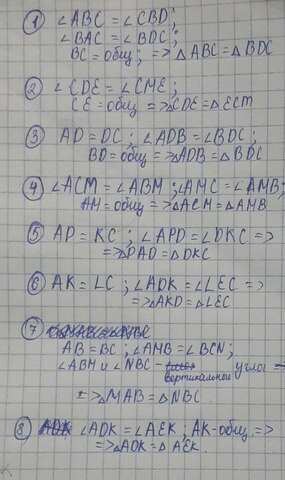 ① ∠ABC = ∠CBD;
∠BAC = ∠BDC;
BC = общ; => △ABC = △BDC
② ∠CDE = ∠CME;
CE = общ => △CDE = △ECM
③ AD = DC; ∠ADB = ∠BDC;
BD = общ => △ADB = △BDC
④ ∠ACM = ∠ABM; ∠AMC = ∠AMB;
AM = общ => △ACM = △AMB
⑤ AP = KC; ∠APD = ∠DKC =>
=> △PAD = △DKC
⑥ AK = LC; ∠ADK = ∠LEC =>
=> △AKD = △LEC
⑦
AB = BC; ∠AMB = ∠BCN;
∠ABM и ∠NBC - вертикальной углы =
=> △MAB = △NBC
⑧ ∠ADK = ∠AEK; AK - общ =>
=> △ADK = △AEK.